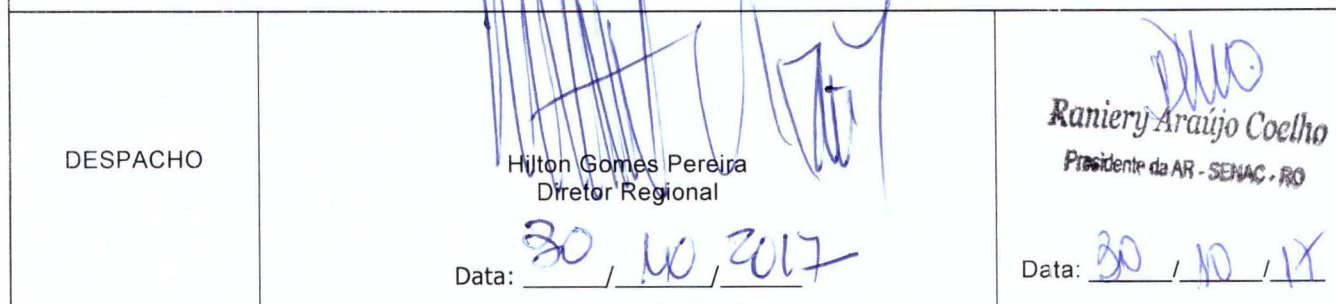 DESPACHO
Hilton Gomes Pereira
Diretor Regional
Data: 30 / 10 / 2017
Raniery Araújo Coelho
Presidente da AR - SENAC - RO
Data: 30 / 10 / 17